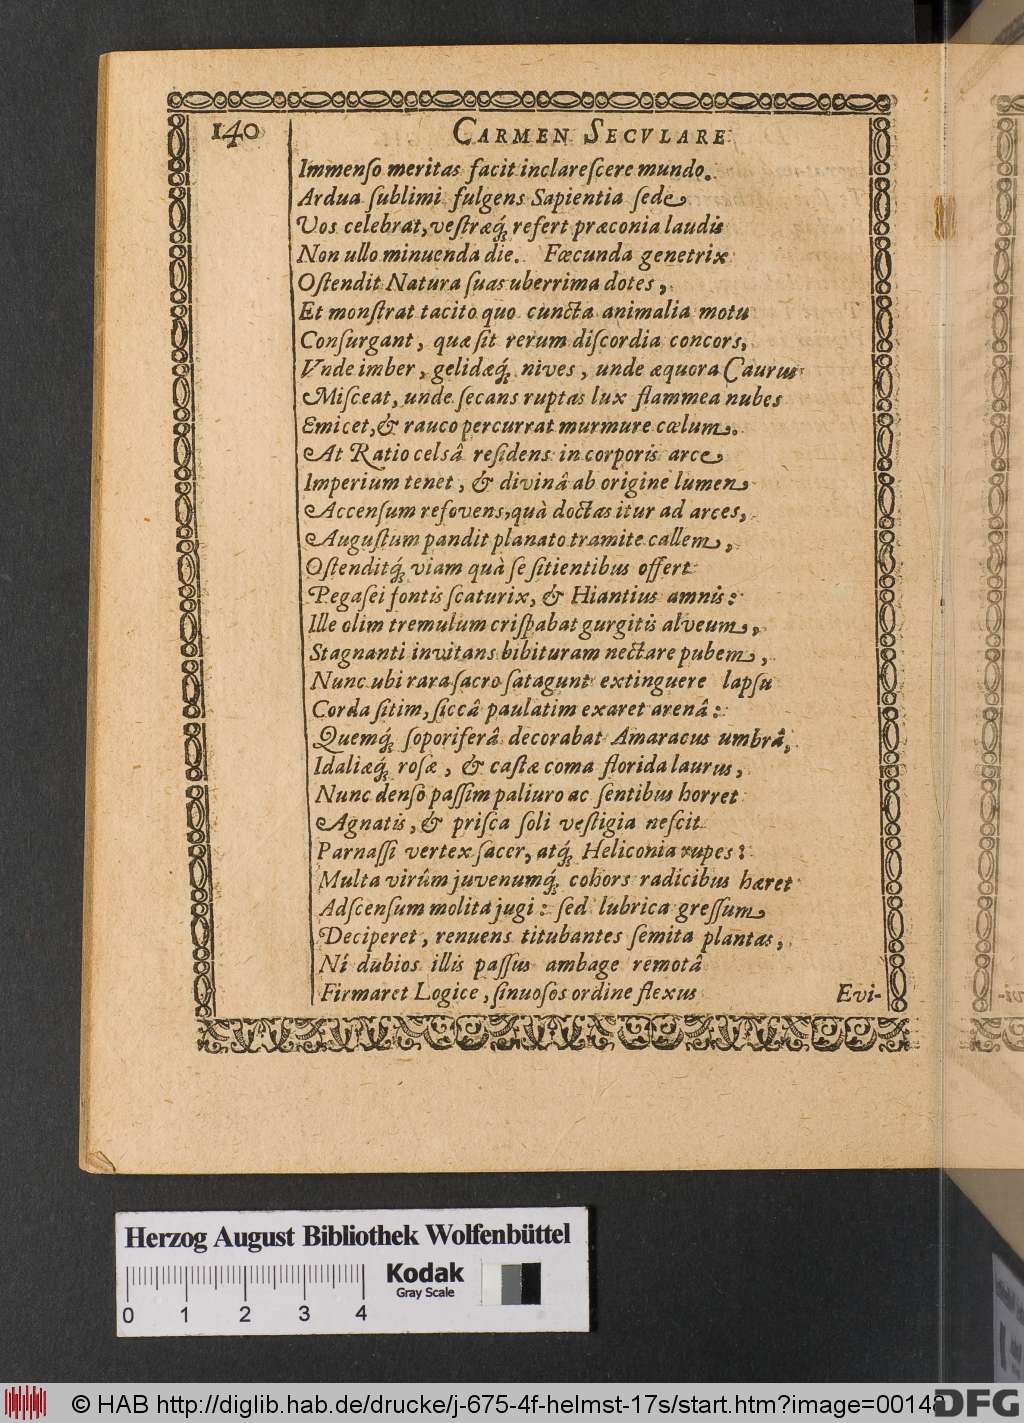 140
CARMEN SECVLARE
Immenſo meritas facit inclareſcere mundo.
Ardua ſublimi fulgens Sapientia ſede
Vos celebrat, veſtræq́; refert præconia laudis
Non ullo minuenda die. Fœcunda genetrix
Oſtendit Natura ſuas uberrima dotes,
Et monſtrat tacito quo cuncta animalia motu
Conſurgant, quæ ſit rerum diſcordia concors,
Vnde imber, gelidæq́; nives, unde æquora Caurus
Miſceat, unde ſecans ruptas lux flammea nubes
Emicet, & rauco percurrat murmure cœlum.
At Ratio celsâ reſidens in corporis arce
Imperium tenet, & divinâ ab origine lumen
Accenſum refovens, quà doctas itur ad arces,
Auguſtum pandit planato tramite callem,
Oſtenditq́; viam quà ſe ſitientibus offert
Pegaſei fontis ſcaturix, & Hiantius amnis:
Ille olim tremulum criſpabat gurgitis alveum,
Stagnanti invitans bibituram nectare pubem,
Nunc ubi rara ſacro ſatagunt extinguere lapſu
Corda ſitim, ſiccâ paulatim exaret arenâ:
Quemq́; ſoporiferâ decorabat Amaracus umbrâ,
Idaliæq́; roſæ, & caſtæ coma florida laurus,
Nunc denſo paſſim paliuro ac ſentibus horret
Agnatis, & priſca ſoli veſtigia neſcit
Parnaſſi vertex ſacer, atq́; Heliconia rupes:
Multa virûm juvenumq́; cohors radicibus hæret
Adſcenſum molita jugi: ſed lubrica greſſum
Deciperet, renuens titubantes ſemita plantas,
Ní dubios illis paſſus ambage remotâ
Firmaret Logice, ſinuoſos ordine flexus
Evi-
Herzog August Bibliothek Wolfenbüttel
0 1 2 3 4
Kodak
Gray Scale
© HAB http://diglib.hab.de/drucke/j-675-4f-helmst-17s/start.htm?image=00148
DFG